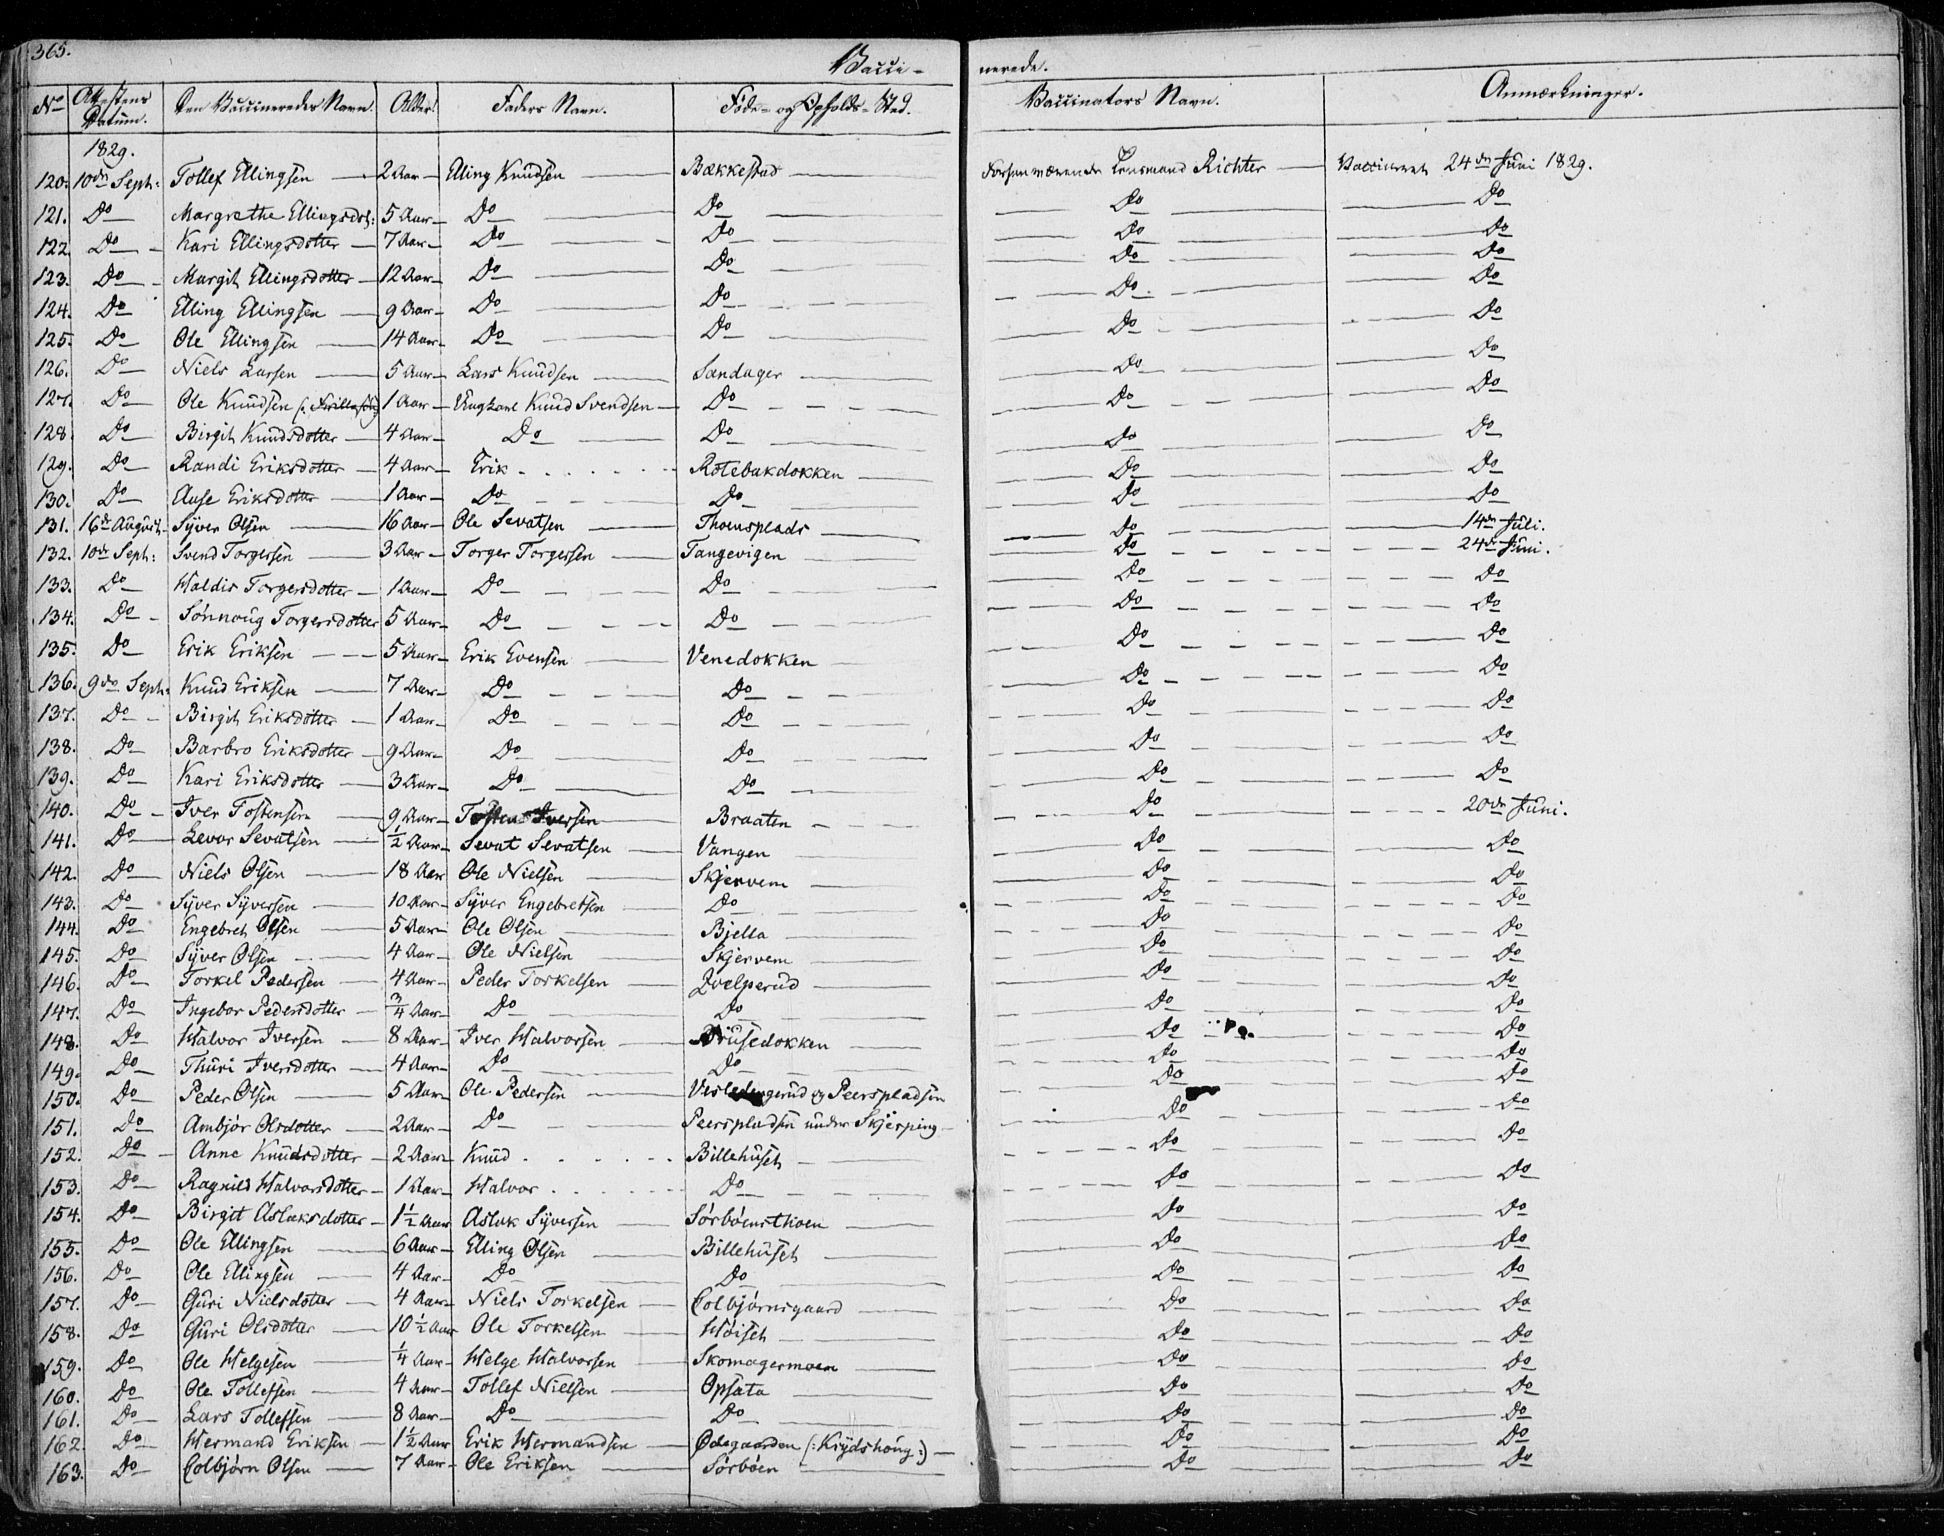 365.
Vacci- nerede.
No Attestens Datum. Den Vaccineredes Navn. Alder. Faders Navn. Føde- og Opholds-Sted. Vaccinators Navn. Anmærkninger.
1829.
120. 10de Sept: Tollef Ellingsen 2 Aar Elling Knudsen Bækkestad Forhenværende Lensmand Richter Vaccineret 24de Juni 1829.
121. Do Margrethe Ellingsdot: 5 Aar Do Do Do Do
122. Do Kari Ellingsdotter 7 Aar Do Do Do Do
123. Do Margit Ellingsdotter 12 Aar Do Do Do Do
124. Do Elling Ellingsen 9 Aar Do Do Do Do
125. Do Ole Ellingsen 14 Aar Do Do Do Do
126. Do Niels Larsen 5 Aar Lars Knudsen Sandager Do Do
127. Do Ole Knudsen 1 Aar Ungkarl Knud Svendsen Do Do Do
128. Do Birgit Knudsdotter 4 Aar Do Do Do Do
129. Do Randi Eriksdotter 4 Aar Erik Rotebakdokken Do Do
130. Do Aase Eriksdotter 1 Aar Do Do Do Do
131. 16de August Syver Olsen 16 Aar Ole Sevatsen Thoensplads Do 14de Juli.
132. 10de Sept: Svend Torgersen 3 Aar Torger Torgersen Tangevigen Do 24de Juni.
133. Do Haldis Torgersdotter 1 Aar Do Do Do Do
134. Do Sønnoug Torgersdotter 5 Aar Do Do Do Do
135. Do Erik Eriksen 5 Aar Erik Evensen Venedokken Do Do
136. 9de Sept: Knud Eriksen 7 Aar Do Do Do Do
137. Do Birgit Eriksdotter 1 Aar Do Do Do Do
138. Do Barbro Eriksdotter 9 Aar Do Do Do Do
139. Do Kari Eriksdotter 3 Aar Do Do Do Do
140. Do Iver Tostensen 9 Aar Tosten Iversen Braaten Do 20de Juni.
141. Do Levor Sevatsen 1/2 Aar Sevat Sevatsen Vangen Do Do
142. Do Niels Olsen 18 Aar Ole Nielsen Skjervem Do Do
143. Do Syver Syversen 10 Aar Syver Engebretsen Do Do Do
144. Do Engebret Olsen 5 Aar Ole Olsen Bjella Do Do
145. Do Syver Olsen 4 Aar Ole Nielsen Skjervem Do Do
146. Do Torkel Pedersen 4 Aar Peder Torkelsen Qvelperud Do Do
147. Do Ingebor Pedersdotter 3/4 Aar Do Do Do Do
148. Do Halvor Iversen 8 Aar Iver Halvorsen Brusedokken Do Do
149. Do Thuri Iversdotter 4 Aar Do Do Do Do
150. Do Peder Olsen 5 Aar Ole Pedersen og Peerspladsen Do Do
151. Do Ambjør Olsdotter 2 Aar Do Peerspladsen under Skjerping Do Do
152. Do Anne Knudsdotter 2 Aar Knud Billehuset Do Do
153. Do Ragnild Halvorsdotter 1 Aar Halvor Do Do Do
154. Do Birgit Aslaksdotter 1 1/2 Aar Aslak Syversen Sørbøensthoen Do Do
155. Do Ole Ellingsen 6 Aar Elling Olsen Billehuset Do Do
156. Do Ole Ellingsen 4 Aar Do Do Do Do
157. Do Guri Nielsdotter 4 Aar Niels Torkelsen Colbjørnsgaard Do Do
158. Do Guri Olsdotter 10 1/2 Aar Ole Torkelsen Høiset Do Do
159. Do Ole Helgesen 1/4 Aar Helge Halvorsen Skomagermoen Do Do
160. Do Ole Tollefsen 4 Aar Tollef Nielsen Opsata Do Do
161. Do Lars Tollefsen 8 Aar Do Do Do Do
162. Do Hermand Eriksen 1 1/2 Aar Erik Hermandsen Ødegaarden (:Krydshoug:) Do Do
163. Do Colbjørn Olsen 7 Aar Ole Eriksen Sørbøen Do Do